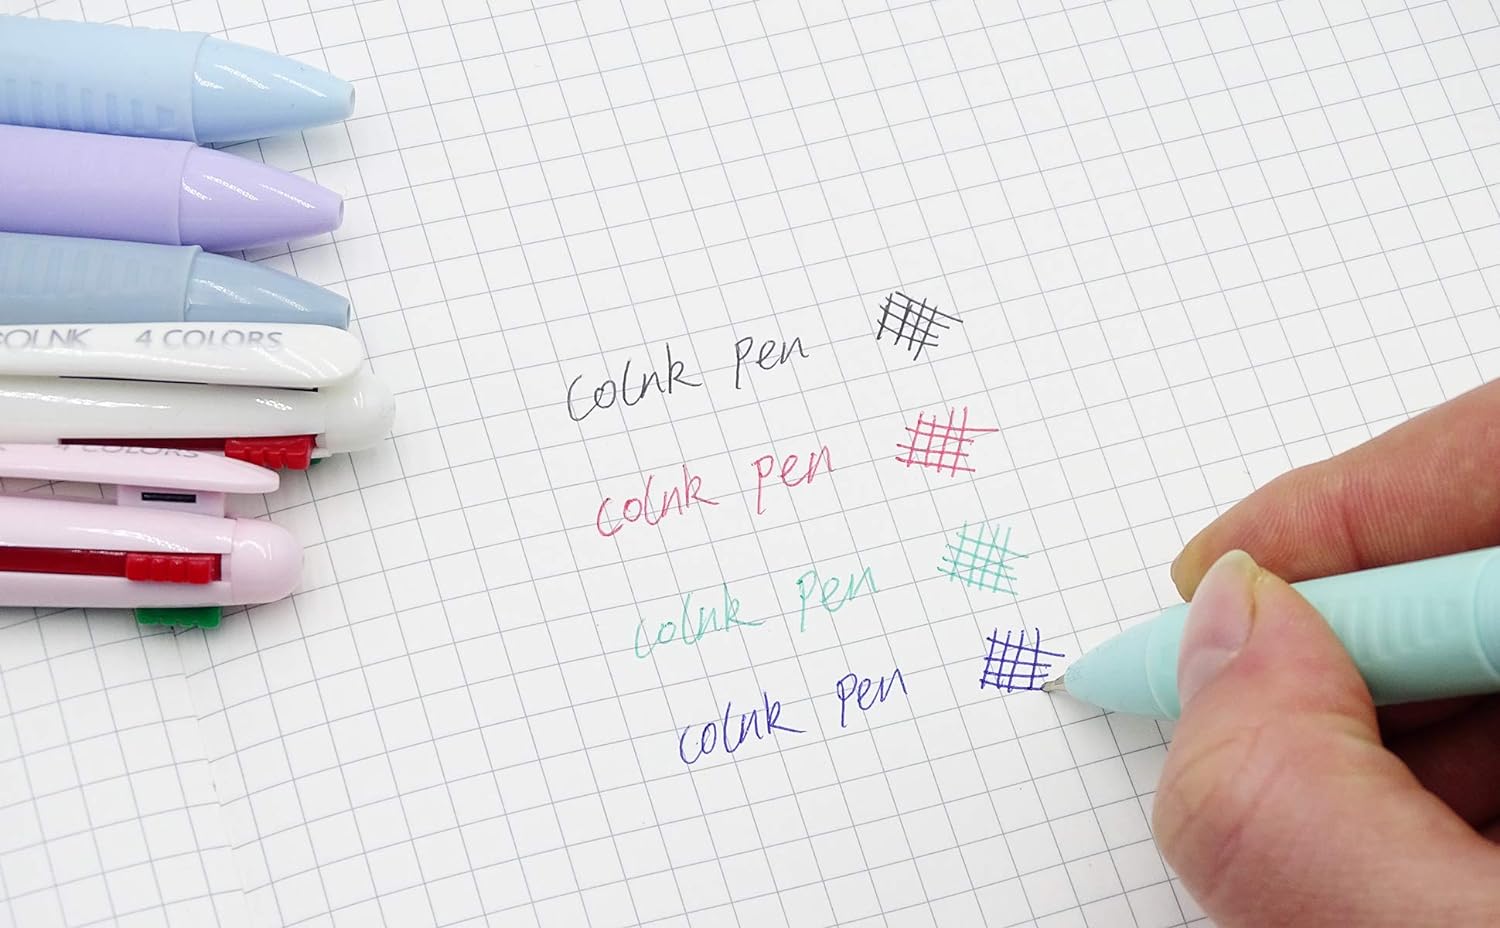 OLNK 4 COLORS
4 COLORS
Colnk Pen
Colnk pen
Colnk Pen
Colnk Pen